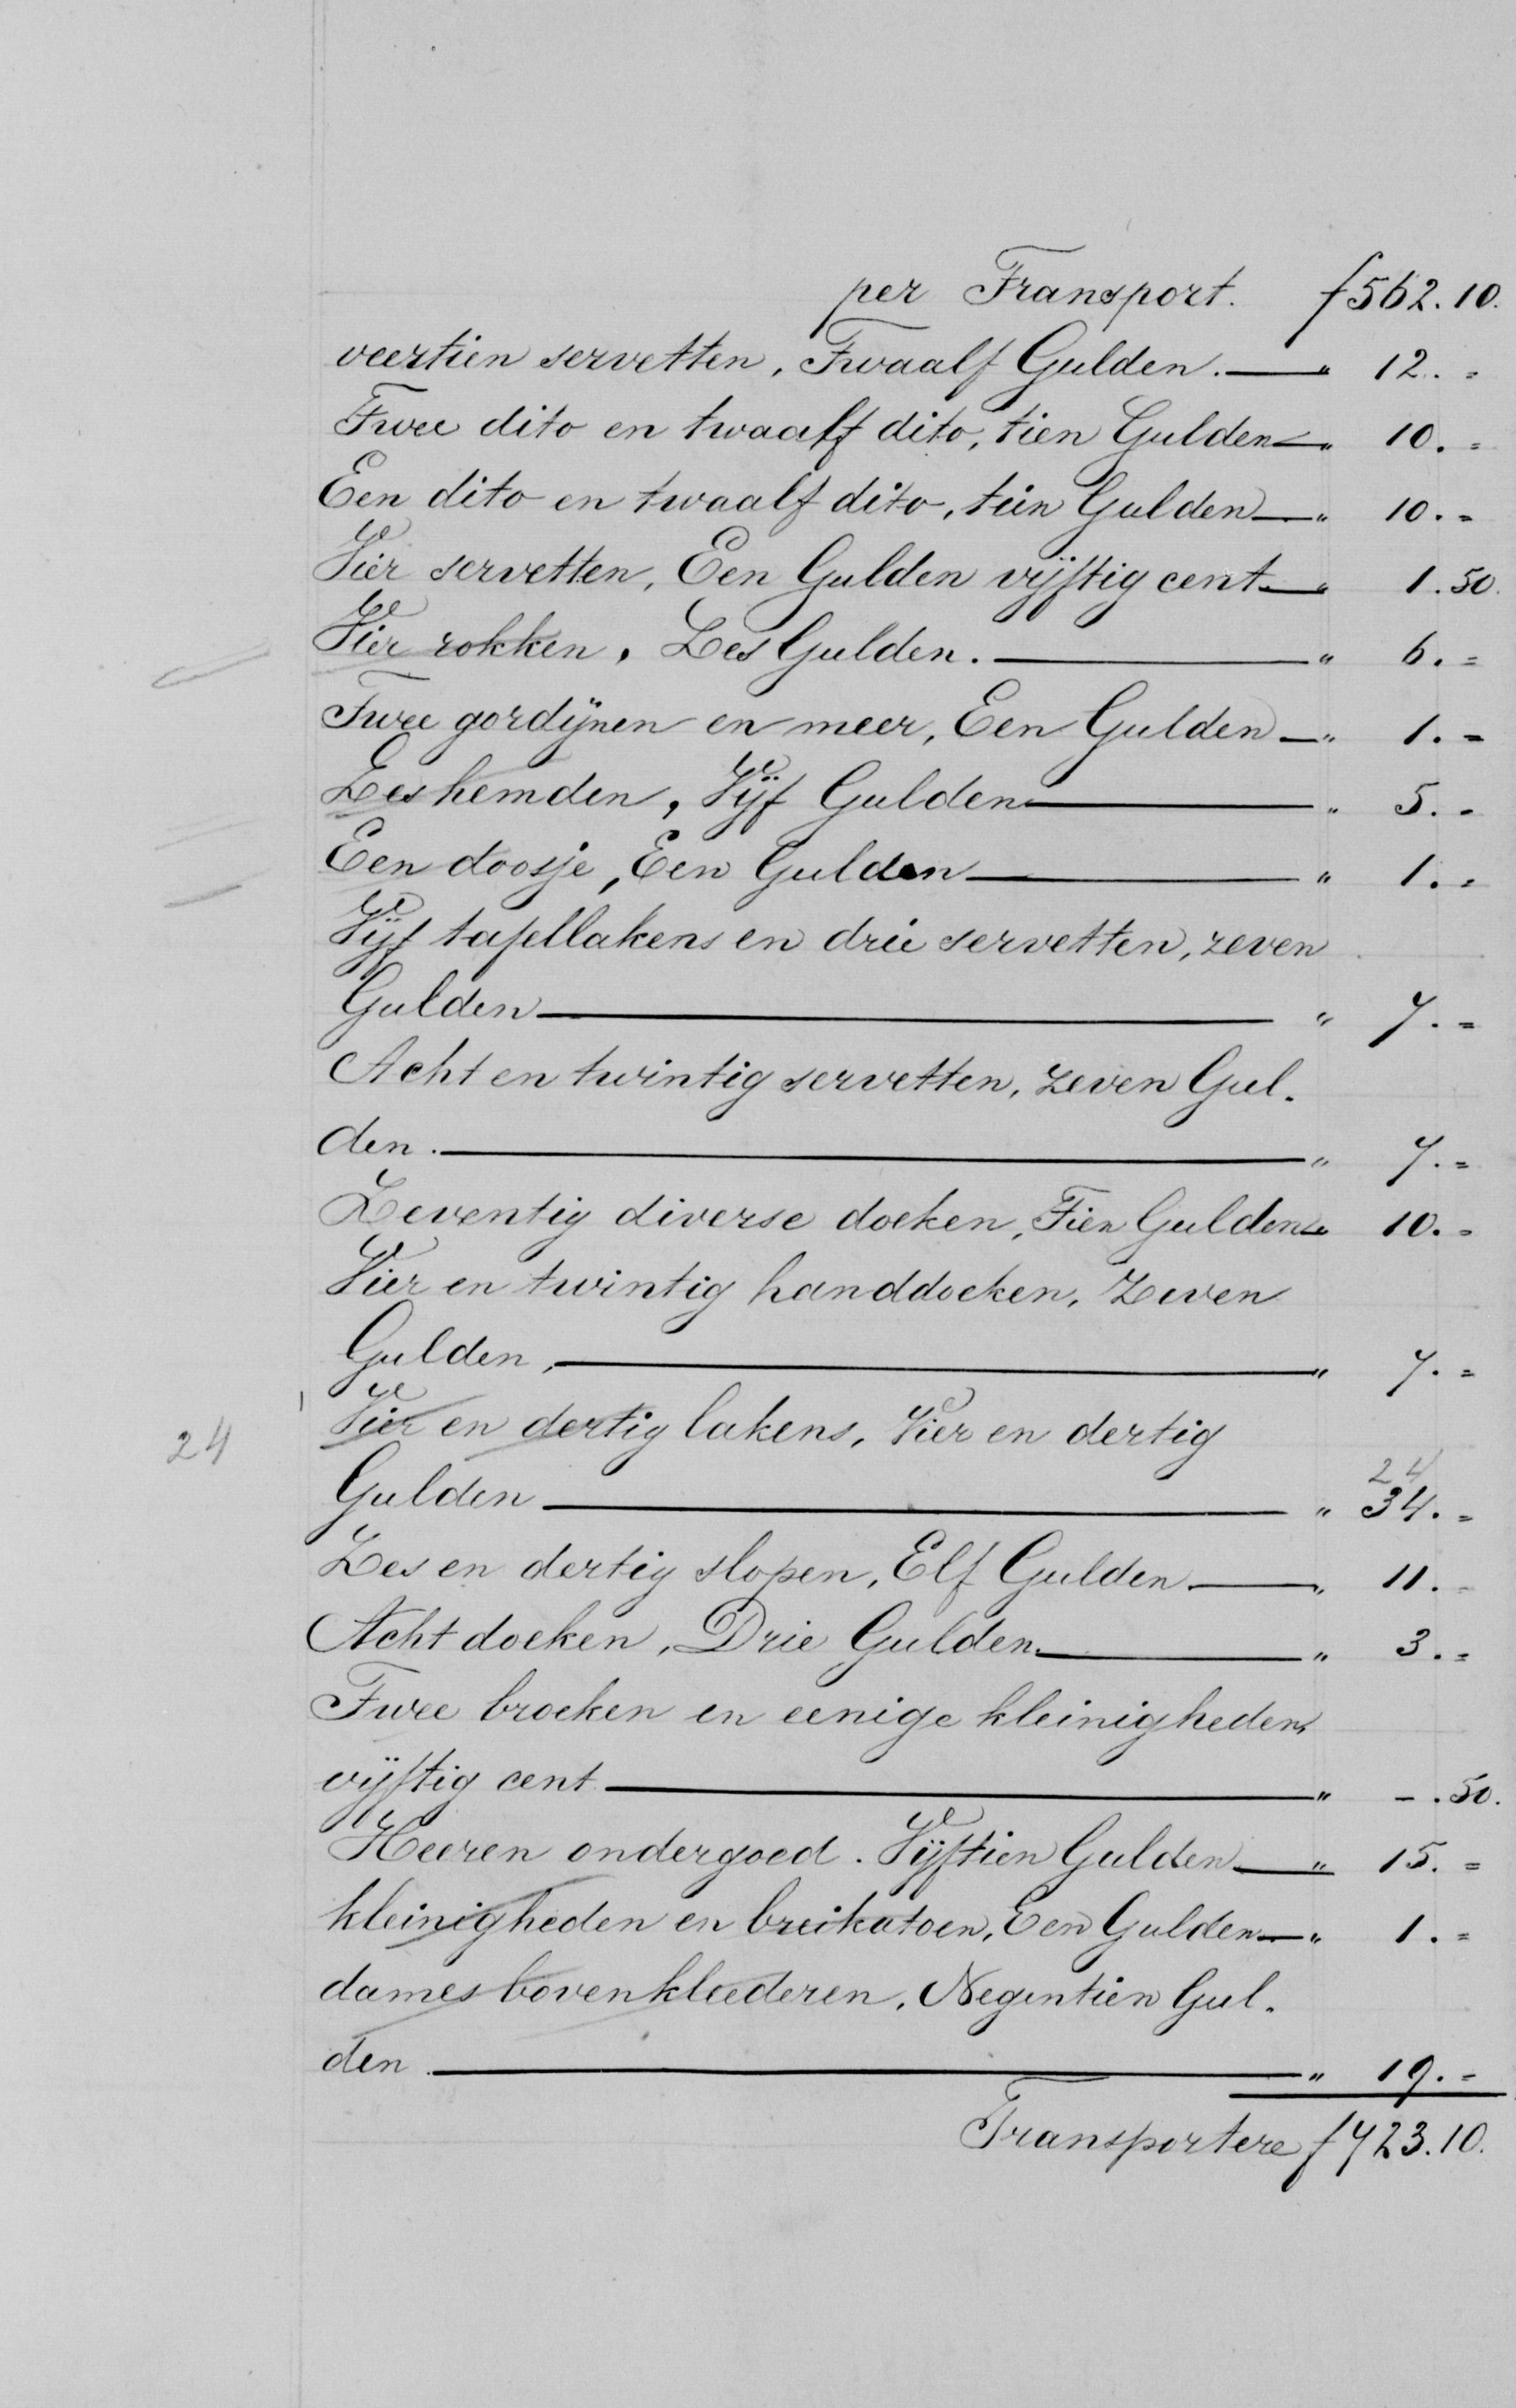 per Transport. f 562.10.
veertien servetten, Twaalf Gulden. — " 12. =
Twee dito en twaalf dito, tien Gulden — " 10. =
Een dito en twaalf dito, tien Gulden — " 10. =
Vier servetten, Een Gulden vijftig cent — " 1.50.
Vier rokken, Zes Gulden. — " 6. =
Twee gordijnen en meer, Een Gulden — " 1. =
Zes hemden, Vijf Gulden — " 5. =
Een doosje, Een Gulden — " 1. =
Vijf tafellakens en drie servetten, zeven
Gulden — " 7. =
Acht en twintig servetten, zeven Gul-
den. — " 7. =
Zeventig diverse doeken, Tien Gulden — " 10. =
Vier en twintig handdoeken, Zeven
Gulden, — " 7. =
24 Vier en dertig lakens, Vier en dertig
24
Gulden — " 34. =
Zes en dertig slopen, Elf Gulden — " 11. =
Acht doeken, Drie Gulden — " 3. =
Twee broeken en eenige kleinigheden
vijftig cent — " -.50.
Heeren ondergoed. Vijftien Gulden — " 15. =
kleinigheden en breikatoen, Een Gulden — " 1. =
dames bovenkleederen, Negentien Gul-
den — " 19. =
Transportere f 723.10.